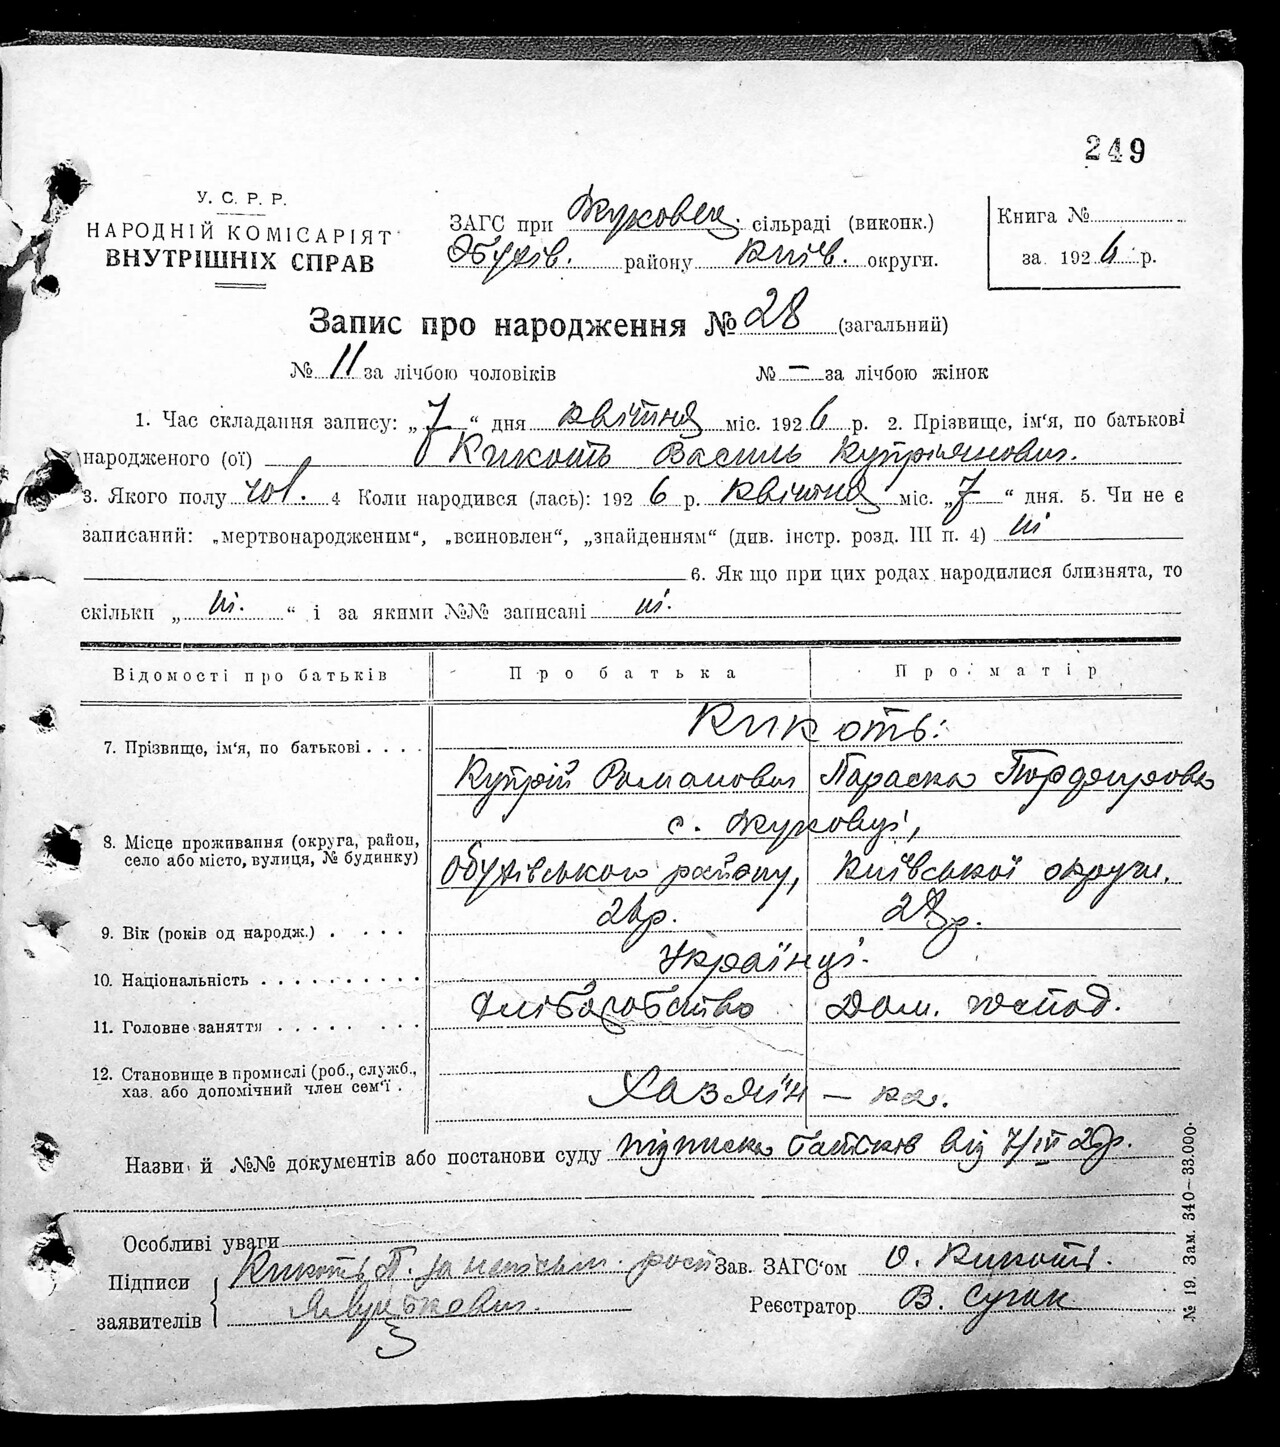 249
У. С. Р. Р.
НАРОДНІЙ КОМІСАРІЯТ
ВНУТРІШНІХ СПРАВ
ЗАГС при Жуковец. сільраді (виконк.)
Обухів. району Київ. округи.
Книга №
за 1926 р.
Запис про народження № 28 (загальний)
№ 11 за лічбою чоловіків № — за лічбою жінок
1. Час складання запису: „7“ дня квітня міс. 1926 р. 2. Прізвище, ім'я, по батькові
народженого (ої) Кикоть Василь Купріянович.
3. Якого полу чол. 4 Коли народився (лась): 1926 р. квітня міс. „7“ дня. 5. Чи не є
записаний: „мертвонародженим“, „всиновлен“, „знайденням“ (див. інстр. розд. III п. 4) ні
6. Як що при цих родах народилися близнята, то
скільки „ні.“ і за якими №№ записані ні.
Відомості про батьків Про батька Про матір
7. Прізвище, ім'я, по батькові . . . . Кикоть:
Купрій Романович Параска
8. Місце проживання (округа, район, село або місто, вулиця, № будинку) с. Жуковці,
Обухівського району, Київської округи.
9. Вік (років од народж.) . . . . 26р. 28р.
10. Національність . . . . . . . . . . Українці.
11. Головне заняття . . . . . . . . . Хліборобство Дом. господ.
12. Становище в промислі (роб., служб., хаз. або допомічний член сем'ї . Хазяїн — ка.
Назви й №№ документів або постанови суду підписка батьків від
Особливі уваги
Підписи заявителів Кикоть П. за
Зав. ЗАГС'ом О. Кикоть.
Реєстратор В. Сугак
№ 19. Зам. 340—33.000.